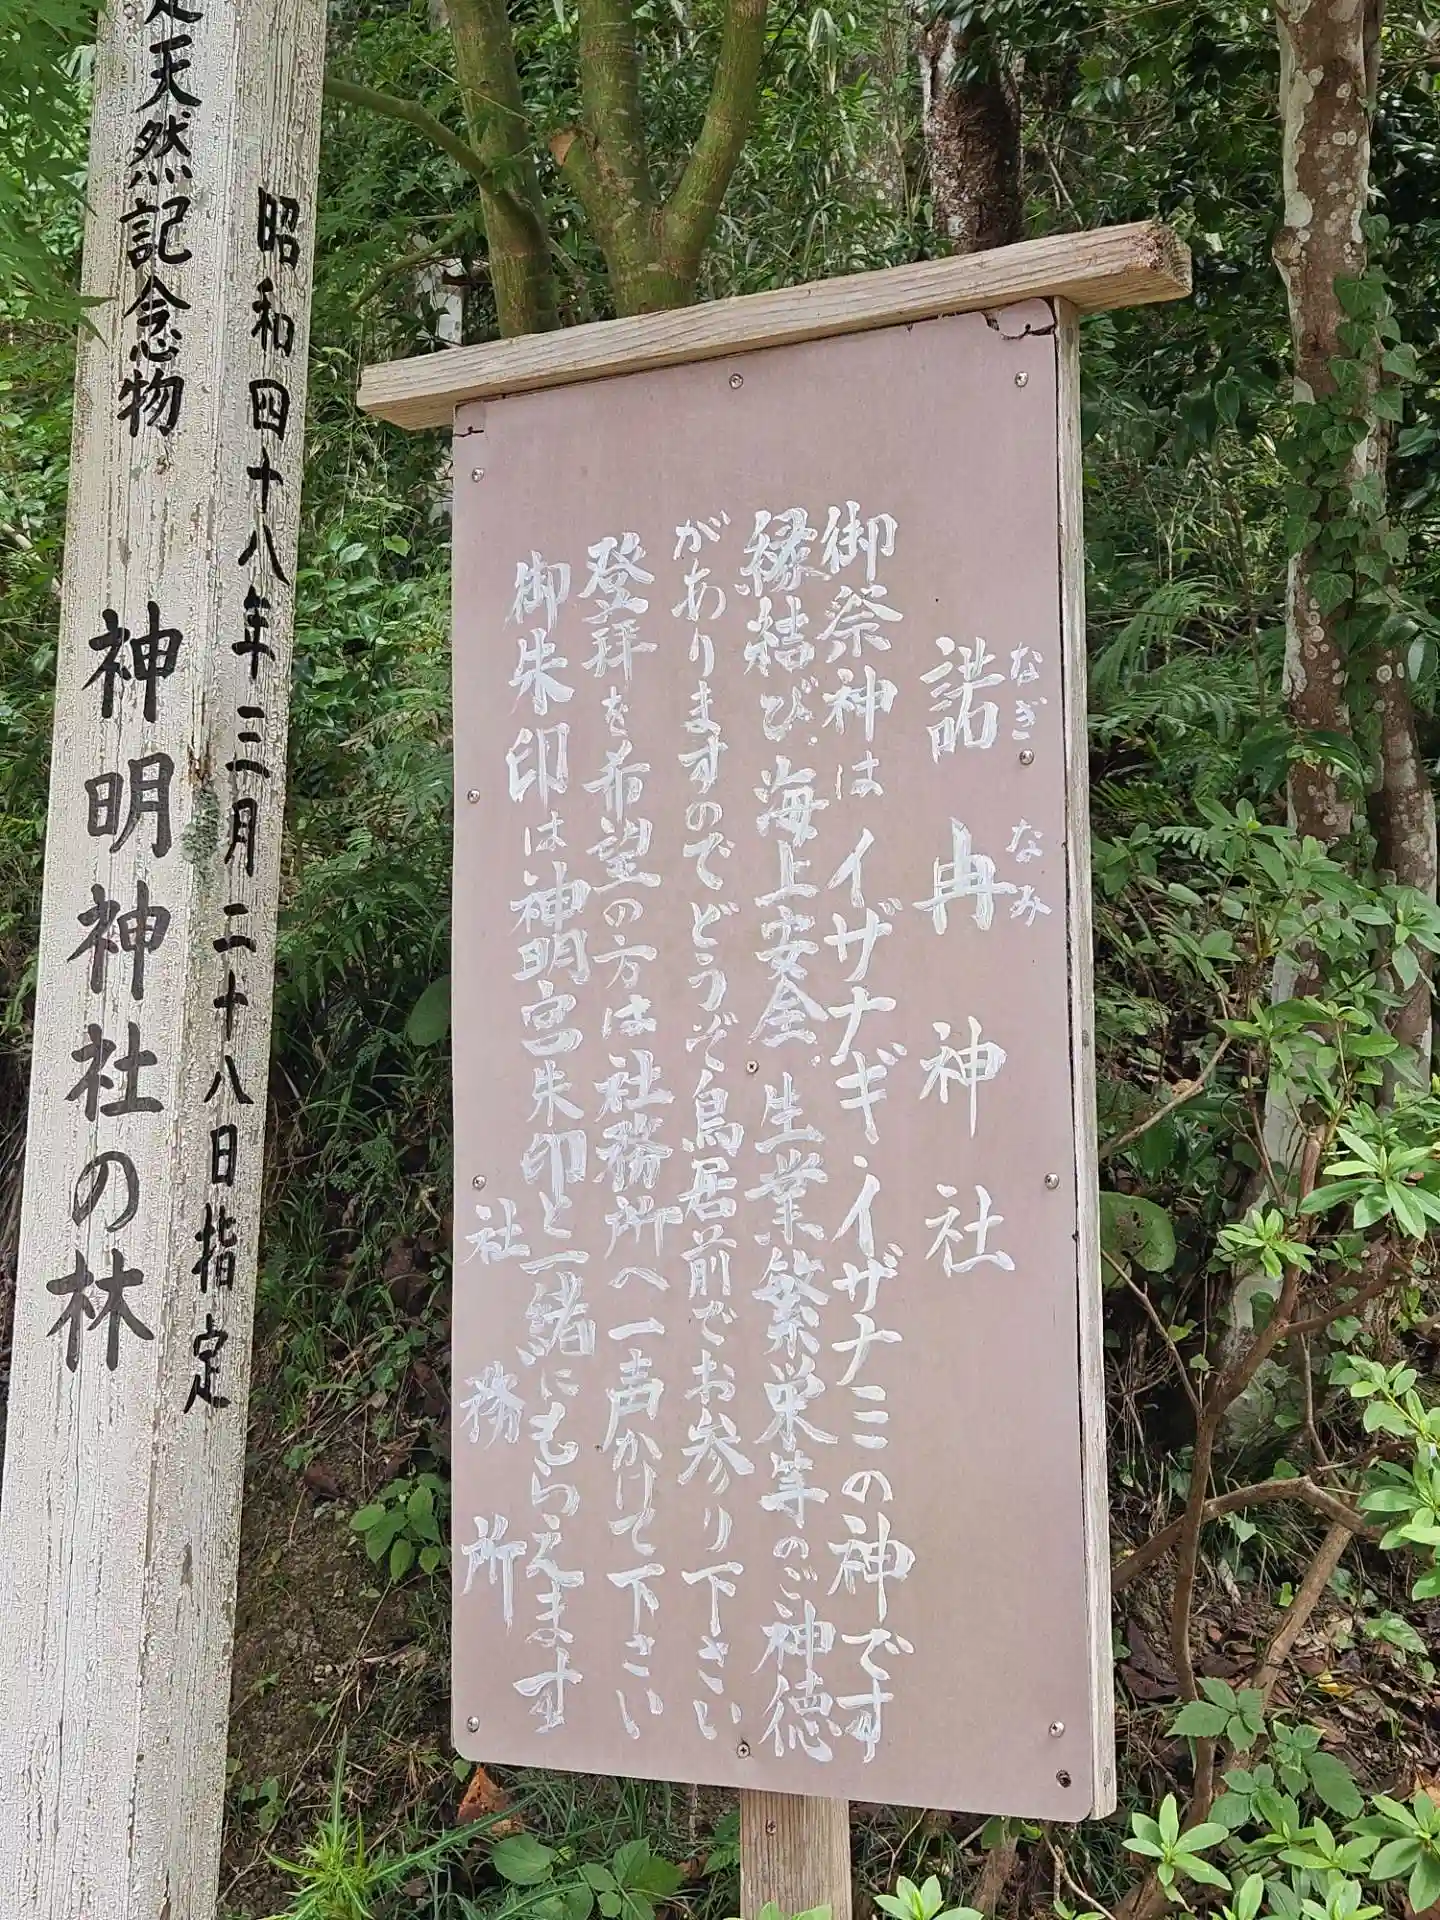 なぎ なみ
諾冉神社
御祭神はイザナギ、イザナミの神です
縁結び、海上安全、生業繁栄等のご神徳
がありますのでどうぞ鳥居前でお参り下さい
登拝を希望の方は社務所へ一声かけて下さい
御朱印は神明宮朱印と一緒にもらえます
社務所
昭和四十八年三月二十八日指定
定天然記念物 神明神社の林